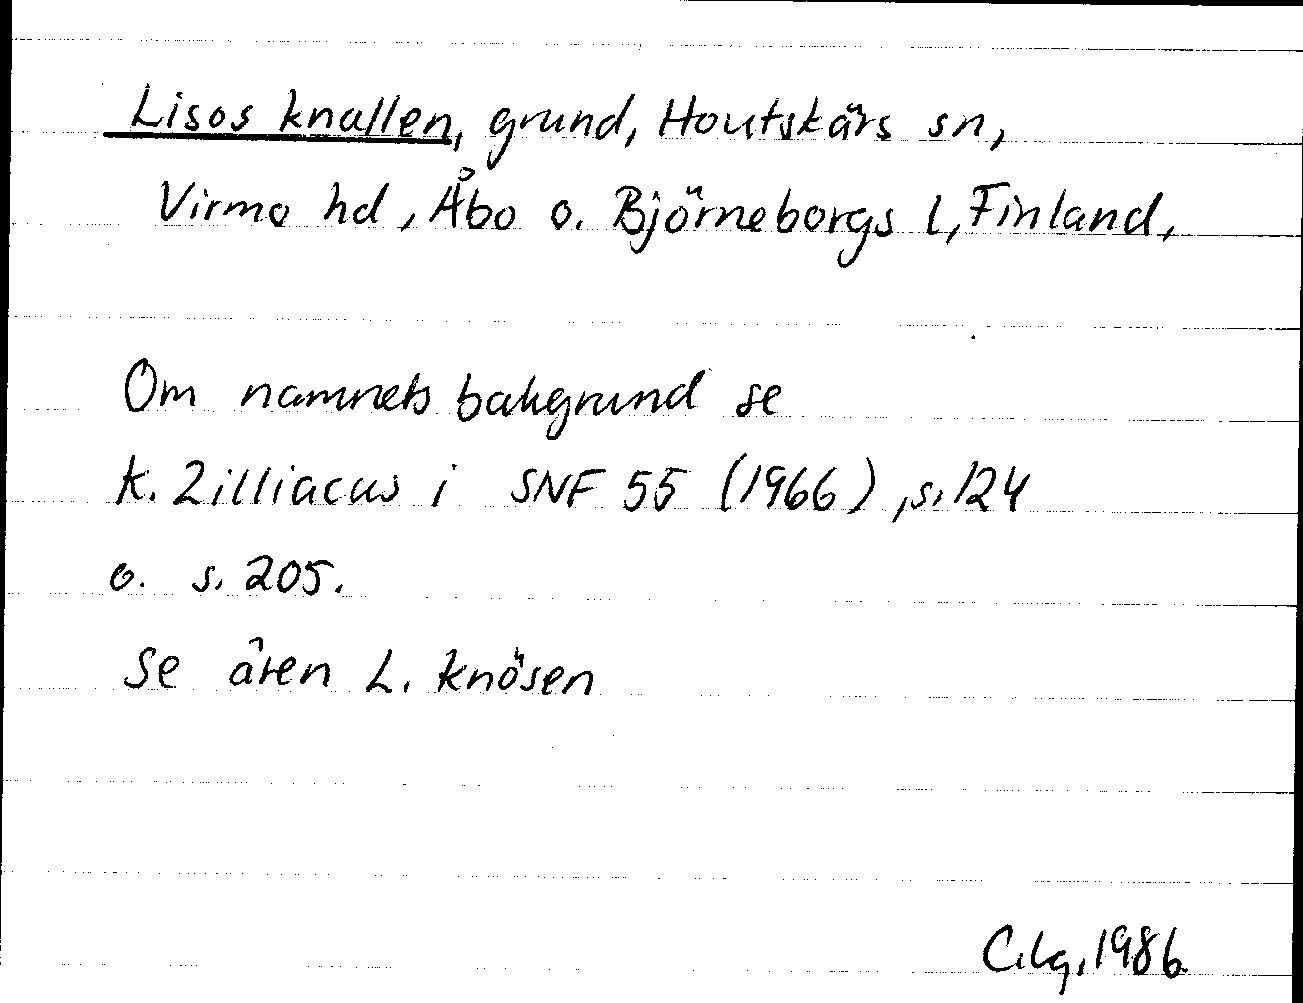 Lisos knallen, grund, Houtskärs sn,
Virmo hd, Åbo o. Björneborgs l, Finland,
Om namnets bakgrund se
K. Zilliacus i SNF 55 (1966), s. 124
o. s. 205.
Se även L. knösen
C.Lg, 1986.